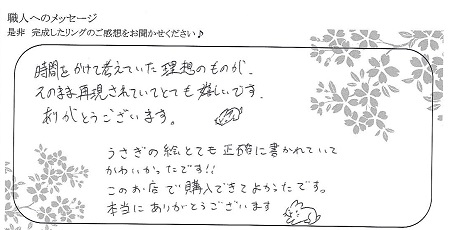 職人へのメッセージ
是非 完成したリングのご感想をお聞かせください♪
時間をかけて考えていた理想のものが、
そのまま再現されていてとても嬉しいです。
ありがとうございます。
うさぎの絵とても正確に書かれていて
かわいかったです!!
このお店で購入できてよかったです。
本当にありがとうございます